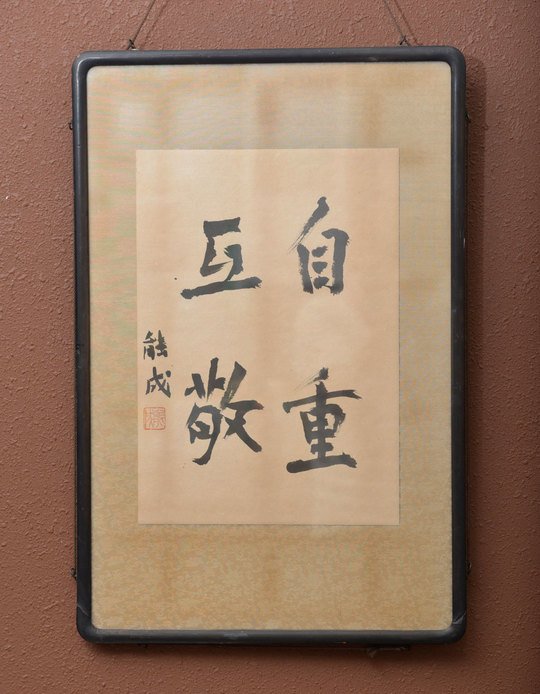 自重
互敬
能成